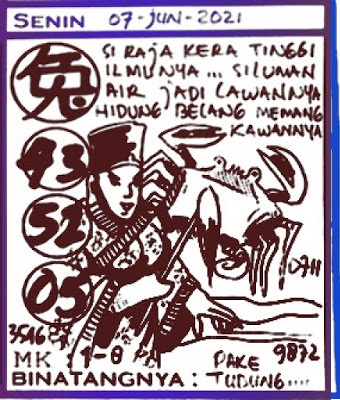 SENIN 07-JUN-2021
SI RAJA KERA TINGGI
ILMUNYA ... SILUMAN
AIR JADI LAWANNYA
HIDUNG BELANG MEMANG
KAWANNYA
兔
93
52
05
0711
3546
9872
MK 1-8
PAKE
BINATANGNYA : TUDUNG....